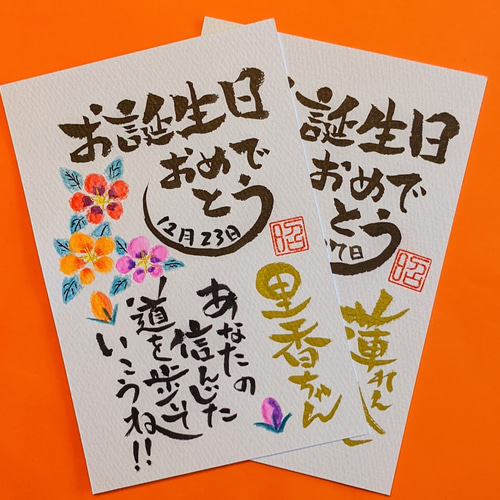 お誕生日
おめで
とう
12月23日
里香ちゃん
あなたの
信んじた
道を歩んで
いこうね!!
誕生日
おめで
とう
7日
蓮